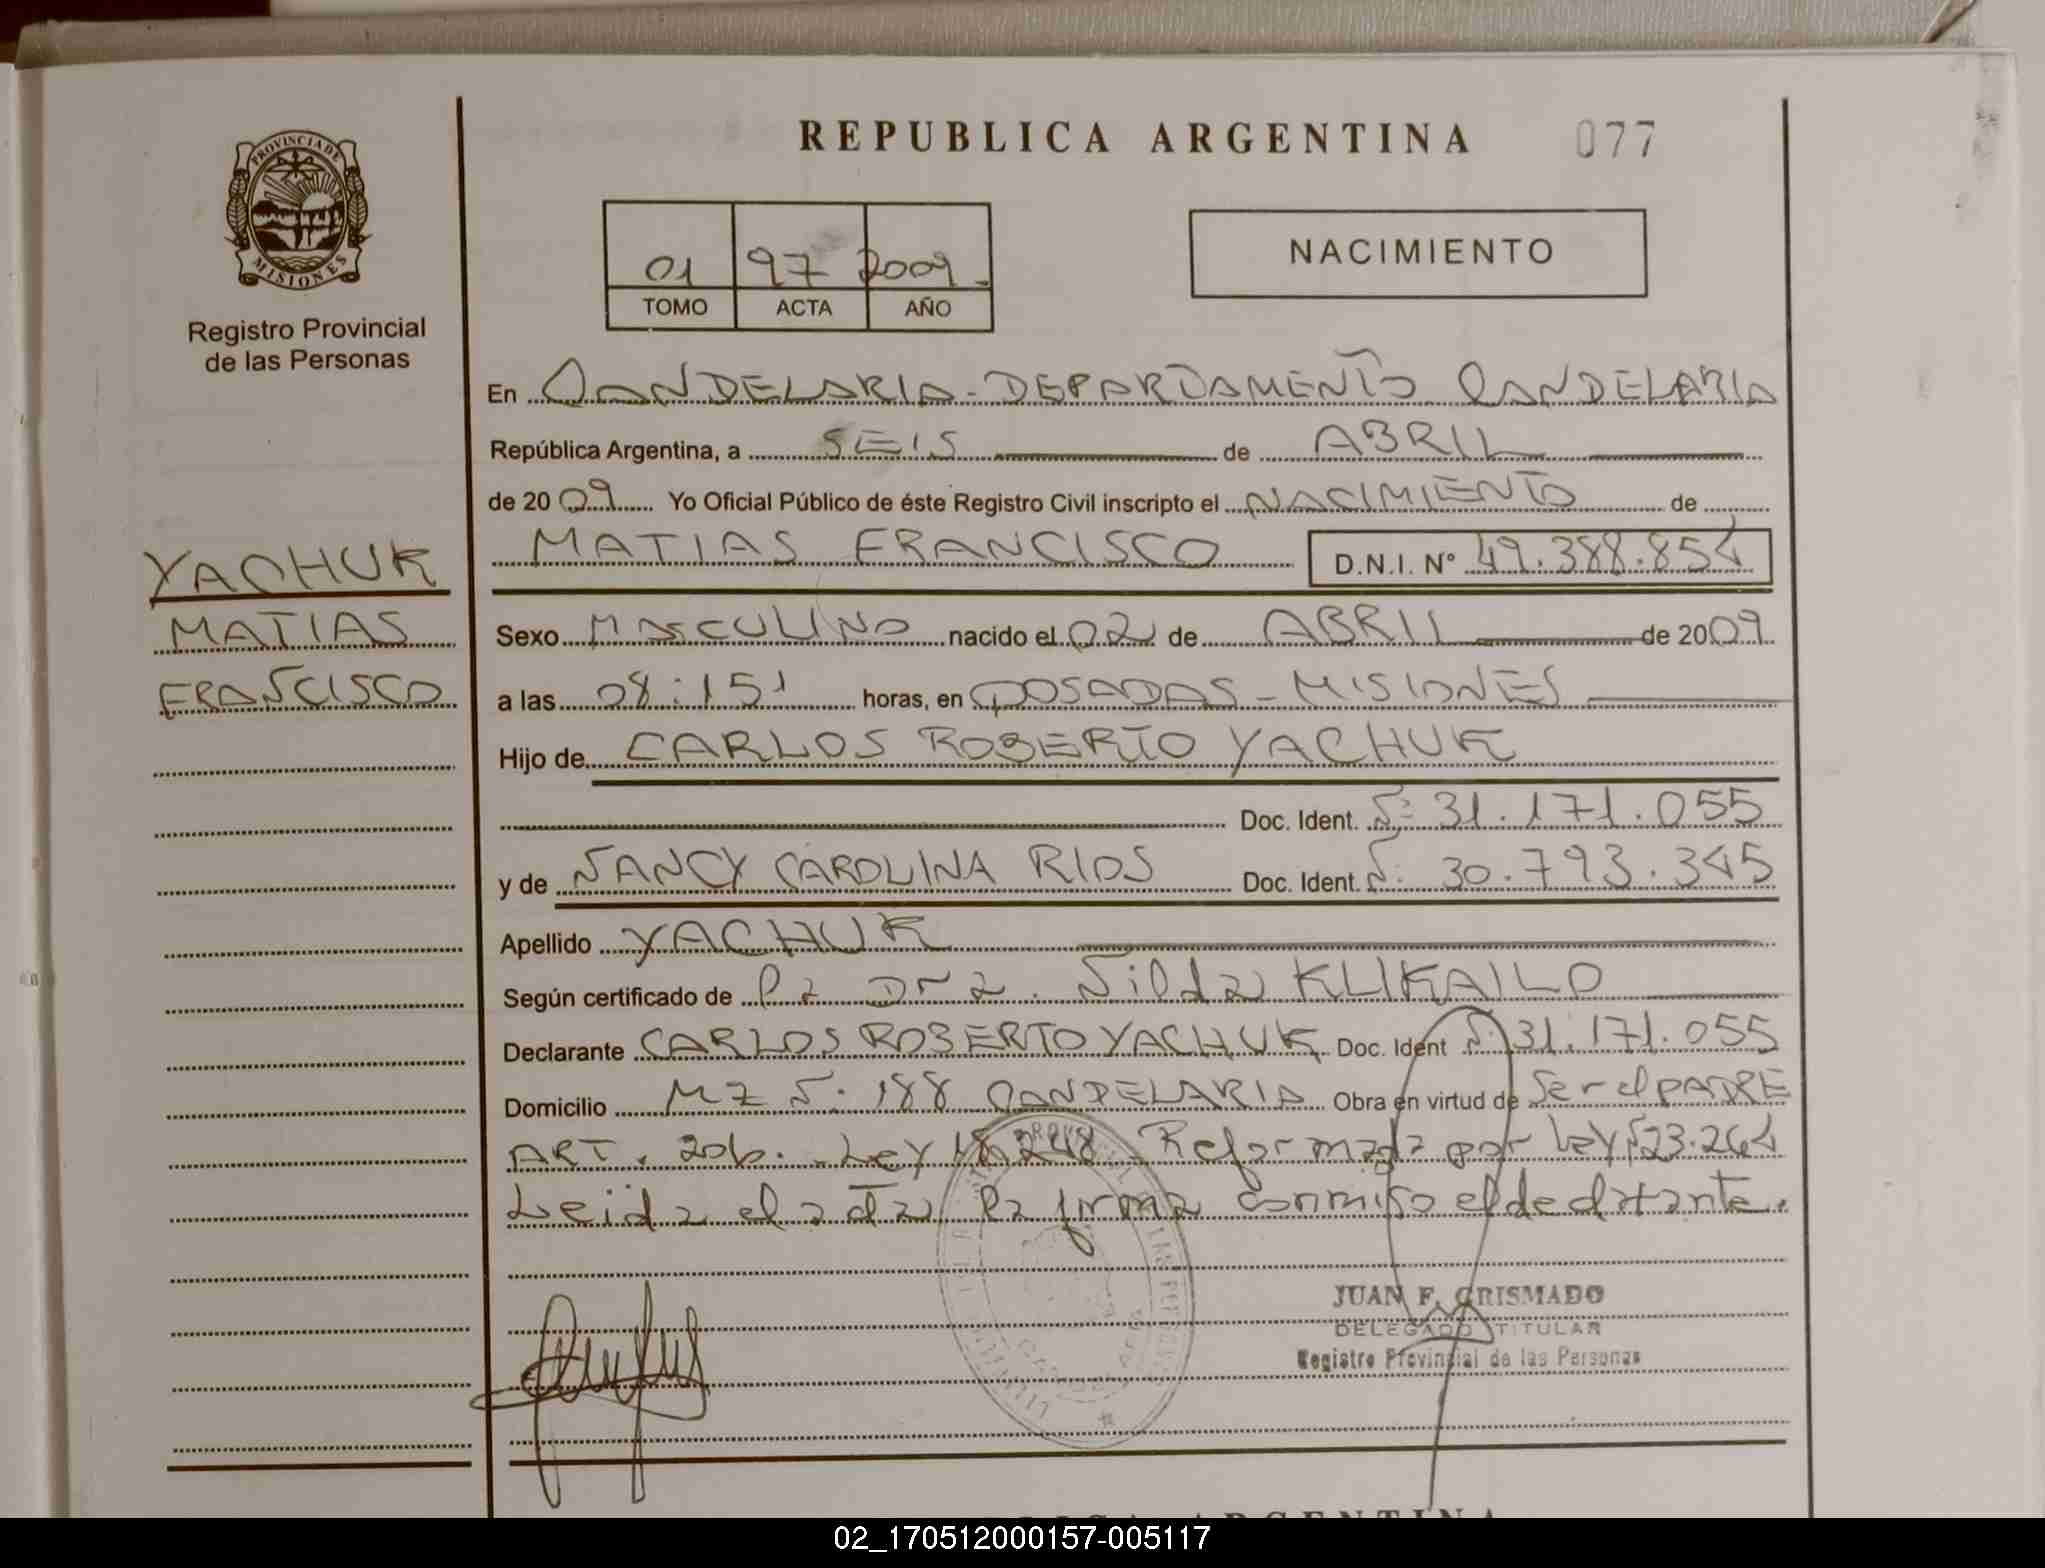 REPUBLICA ARGENTINA 077
PROVINCIA DE
MISIONES
Registro Provincial
de las Personas
01 97 2009
TOMO ACTA AÑO
NACIMIENTO
En CANDELARIA - DEPARTAMENTO CANDELARIA
República Argentina, a SEIS de ABRIL
de 2009 Yo Oficial Público de éste Registro Civil inscripto el NACIMIENTO de
MATIAS FRANCISCO D.N.I. Nº 49.388.854
YACHUK
MATIAS
FRANCISCO
Sexo MASCULINO nacido el 02 de ABRIL de 2009
a las 08:15' horas, en POSADAS - MISIONES
Hijo de CARLOS ROBERTO YACHUK
Doc. Ident. Nº 31.171.055
y de NANCY CAROLINA RIOS Doc. Ident. N. 30.793.345
Apellido YACHUK
Según certificado de la Dra. Nilda KLIKAILO
Declarante CARLOS ROBERTO YACHUK Doc. Ident N. 31.171.055
Domicilio MZ N. 188 CANDELARIA Obra en virtud de Ser el PADRE
ART. 20b. - Ley 18.248 - Reformada por Ley N 23.264
Leida el acta, la firma conmigo el declarante.
JUAN F. CRISMADO
DELEGADO TITULAR
Registro Provincial de las Personas
REPUBLICA ARGENTINA
02_170512000157-005117